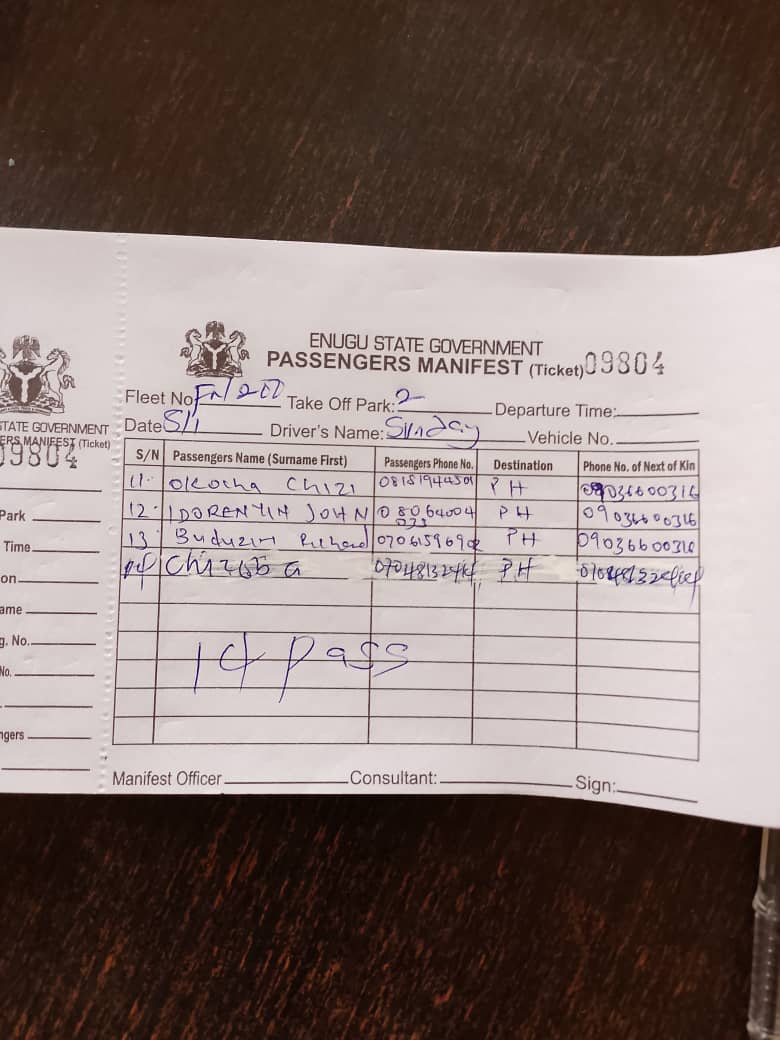 ENUGU STATE GOVERNMENT
PASSENGERS MANIFEST (Ticket) 09804
Fleet No Take Off Park: 2 Departure Time:
Date 5/1 Driver's Name: Sunday Vehicle No.
S/N Passengers Name (Surname First) Passengers Phone No. Destination Phone No. of Next of Kin
11. Okocha Chizi PH 09036600316
12. IDORENYIN JOHN 08064004 PH 09036600316
033
13. Richard PH 09036600316
PH
14 pass
Manifest Officer Consultant: Sign:
STATE GOVERNMENT
ERS MANIFEST (Ticket)
09804
Park
Time
on
ame
g. No.
No.
ngers